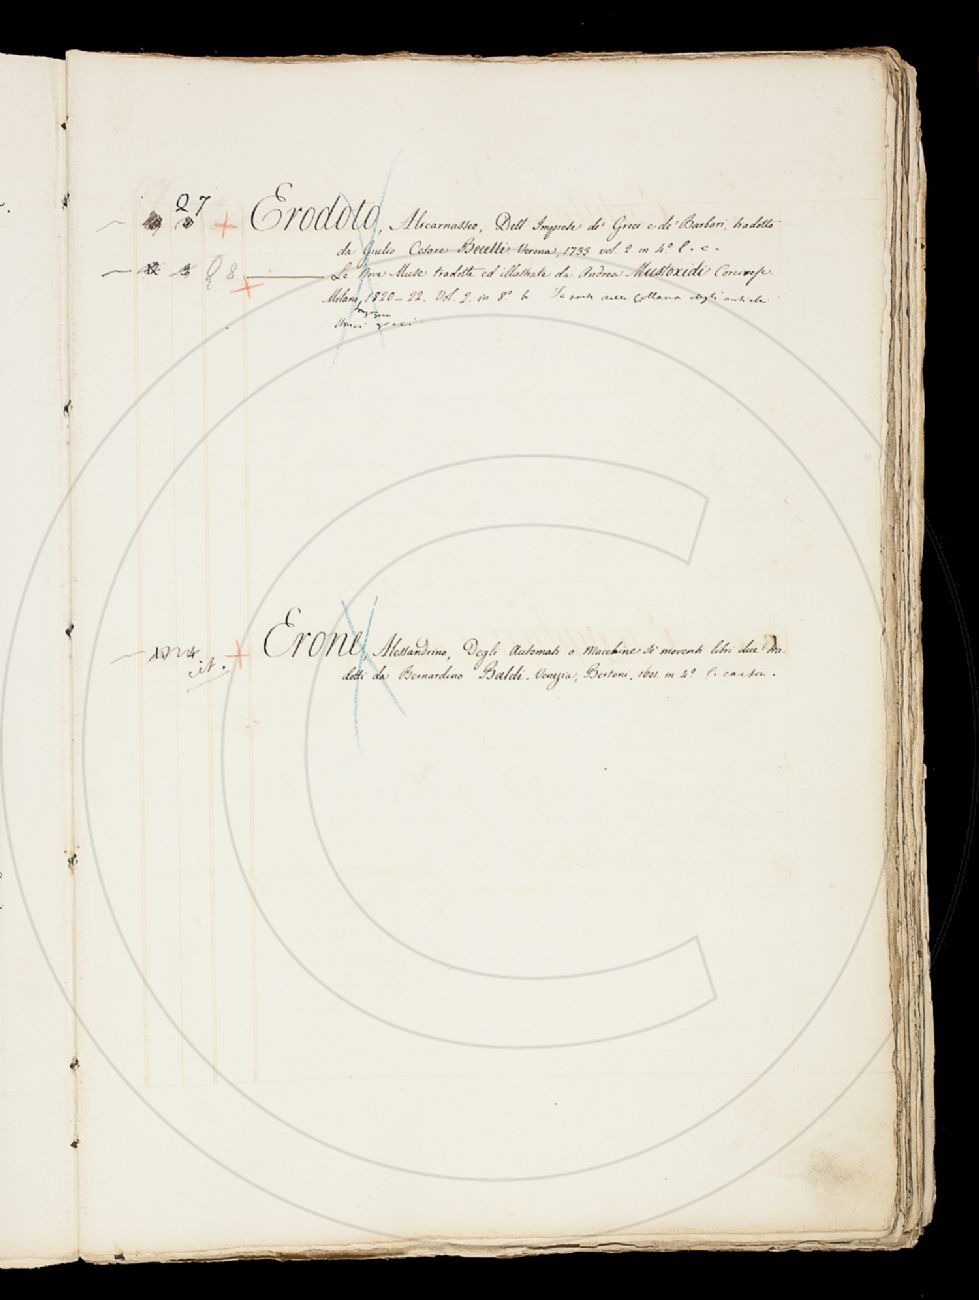 27
Erodoto, Alicarnasseo, Dell' Imprese de' Greci e de' Barbari, tradotto
da Giulio Cesare Becelli Verona, 1733 vol. 2 in 4º l. c.
28 Le Nove Muse tradotte ed illustrate da Andrea Mustoxidi Corcirese
Milano, 1820-22. Vol. 2. in 8º b Fa parte della Collana degli antichi
storici greci
Erone, Alessandrino, Degli Automati o Macchine si moventi libri due tra-
dotti da Bernardino Baldi - Venezia, Bertoni, 1601. in 4º l. carton.